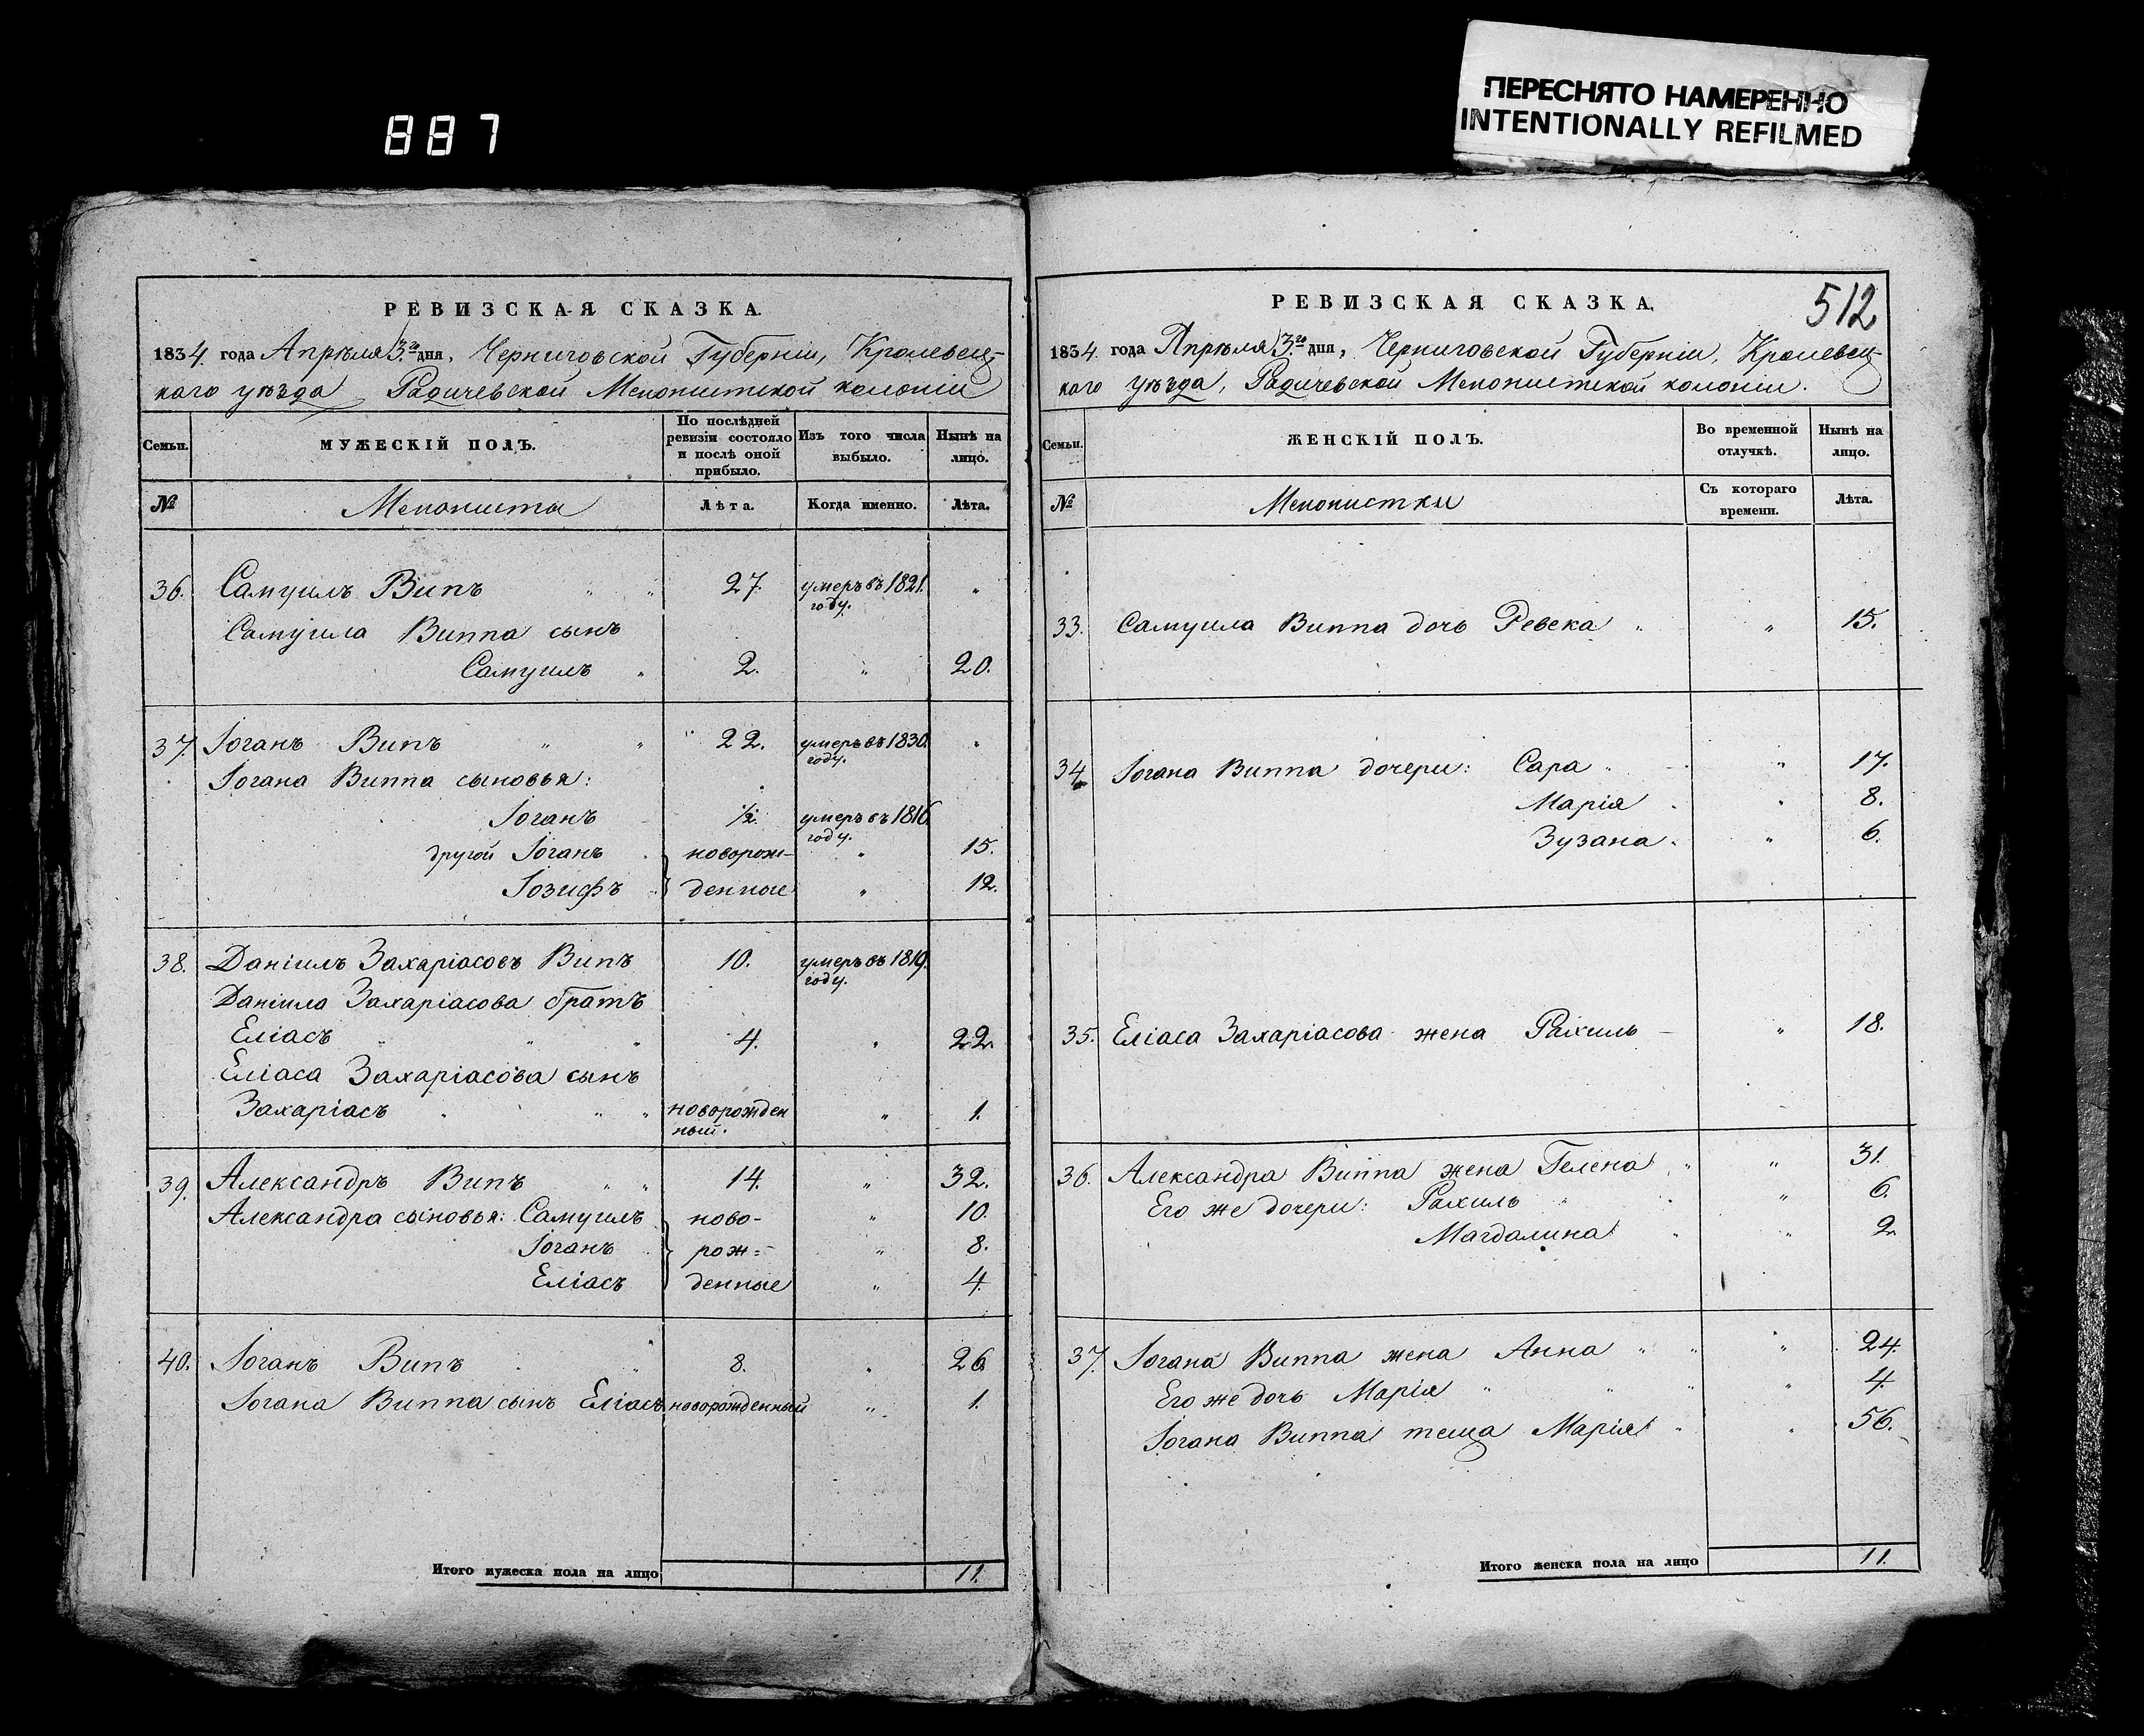 887
ПЕРЕСНЯТО НАМЕРЕННО
INTENTIONALLY REFILMED
РЕВИЗСКАЯ СКАЗКА.
1834 года Апрѣля 3го дня, Черниговской Губерніи, Кролевец-
каго уѣзда Радичевской Менонистской колоніи
Семьи.
МУЖЕСКІЙ ПОЛЪ.
По послѣдней ревизіи состояло и послѣ оной прибыло.
Изъ того числа выбыло.
Нынѣ на лицо.
№ Менониста Лѣта. Когда именно. Лѣта.
36. Самуилъ Випъ " " 27. умеръ въ 1821. "
году.
Самуила Виппа сынъ
Самуилъ " 2. " 20.
37. Іоганъ Випъ " " 22. умеръ въ 1830. "
году.
Іогана Виппа сыновья:
Іоганъ ½. умеръ въ 1816.
году.
другой Іоганъ новорож- " 15.
Іозифъ денные " 12.
38. Даніилъ Захаріасовъ Випъ 10. умеръ въ 1819.
году.
Даніила Захаріасова братъ
Еліасъ " " " 4. " 22.
Еліаса Захаріасова сынъ
Захаріасъ " " " новорожден " 1.
ный.
39. Александръ Випъ " " 14. " 32.
Александра сыновья: Самуилъ ново- " 10.
Іоганъ рож= " 8.
Еліасъ денные " 4.
40. Іоганъ Випъ " " 8. " 26
Іогана Виппа сынъ Еліасъ новорожденный " 1.
Итого мужеска пола на лицо 11.
РЕВИЗСКАЯ СКАЗКА.
512
1834 года Апрѣля 3го дня, Черниговской Губерніи, Кролевец-
каго уѣзда, Радичевской Менонистской колоніи.
Семьи.
ЖЕНСКІЙ ПОЛЪ.
Во временной отлучкѣ.
Нынѣ на лицо.
№ Менонистки Съ котораго времени. Лѣта.
33. Самуила Виппа дочь Ревека " " 15.
34. Іогана Виппа дочери: Сара " " 17.
Марія " " 8.
Зузана " " 6.
35. Еліаса Захаріасова жена Рахиль – " 18.
36. Александра Виппа жена Гелена " " 31.
Его же дочери: Рахиль " " 6.
Магдалина " " 2.
37. Іогана Виппа жена Анна " " " 24.
Его же дочь Марія " " " " 4.
Іогана Виппа теща Марія " " 56.
Итого женска пола на лицо 11.